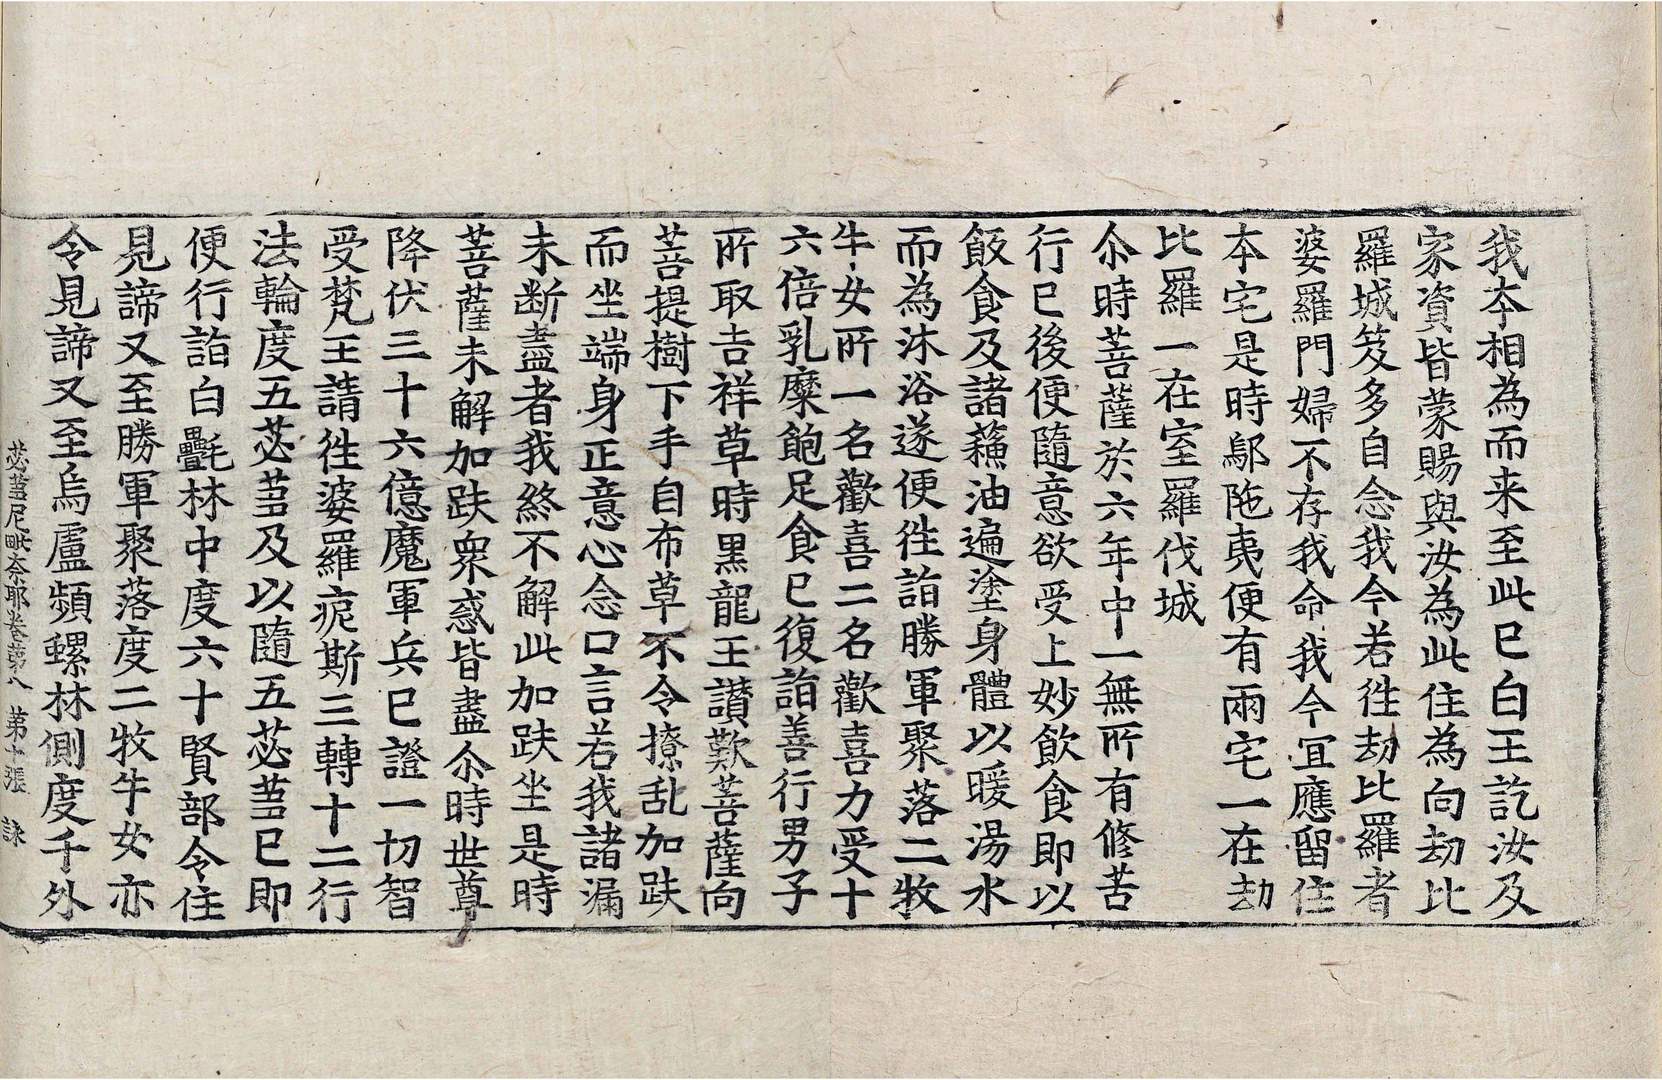 我夲相為而来至此巳白王訖汝及
家資皆蒙賜與汝為此住為向劫比
羅城笈多自念我今若徃劫比羅者
婆羅門婦不存我命我今冝應留住
夲宅是時鄔陁夷便有兩宅一在劫
比羅一在室羅伐城
尒時菩薩於六年中一無所有修苦
行巳後便隨意欲受上妙飲食即以
飯食及諸蘓油遍塗身體以暖湯水
而為沐浴遂便徃詣勝軍聚落二牧
牛女所一名歡喜二名歡喜力受十
六倍乳糜飽足食巳復詣善行男子
所取吉祥草時黒龍王讃歎菩薩向
菩提樹下手自布草不令撩乱加趺
而坐端身正意心念口言若我諸漏
未断盡者我終不解此加趺坐是時
菩薩未解加趺衆惑皆盡尒時世尊
降伏三十六億魔軍兵巳證一切智
受梵王請徃婆羅痆斯三轉十二行
法輪度五苾蒭及以隨五苾蒭巳即
便行詣白㲲林中度六十賢部令住
見諦又至勝軍聚落度二牧牛女亦
令見諦又至烏盧頻螺林側度千外
苾蒭尼毗奈耶卷第八 第十張 詠